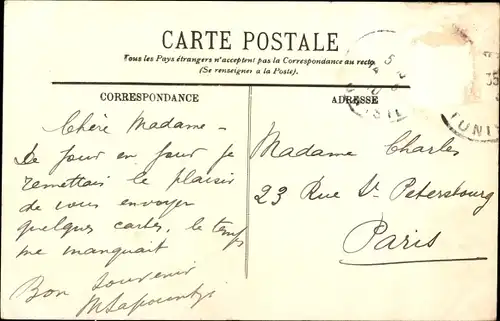 CARTE POSTALE
Tous les Pays étrangers n'acceptent pas la Correspondance au recto
(Se renseigner a la Poste).
CORRESPONDANCE
ADRESSE
Chère Madame -
De jour en jour je
remettais le plaisir
de vous envoyer
quelques cartes, le temps
me manquait
Bon souvenir
Madame Charles
23 Rue St Petersbourg
Paris
TUNIS